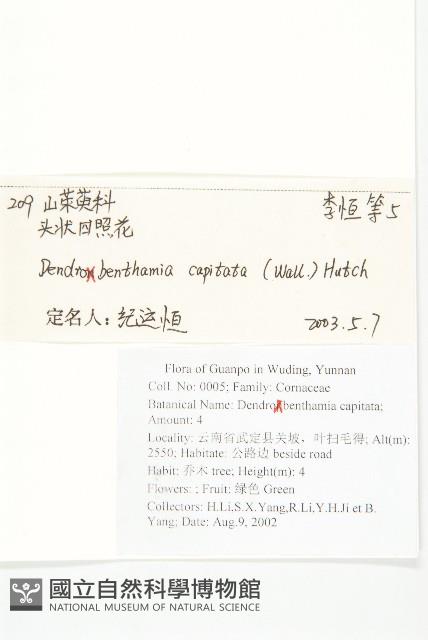 209 山茱萸科 李恒等5
头状四照花
Dendrobenthamia capitata (Wall.) Hutch
定名人：纪运恒 2003.5.7
Flora of Guanpo in Wuding, Yunnan
Coll. No: 0005; Family: Cornaceae
Batanical Name: Dendrobenthamia capitata;
Amount: 4
Locality: 云南省武定县关坡，叶扫毛得; Alt(m):
2550; Habitate: 公路边 beside road
Habit: 乔木 tree; Height(m): 4
Flowers: ; Fruit: 绿色 Green
Collectors: H.Li,S.X.Yang,R.Li,Y.H.Ji et B.
Yang; Date: Aug.9, 2002
國立自然科學博物館
NATIONAL MUSEUM OF NATURAL SCIENCE